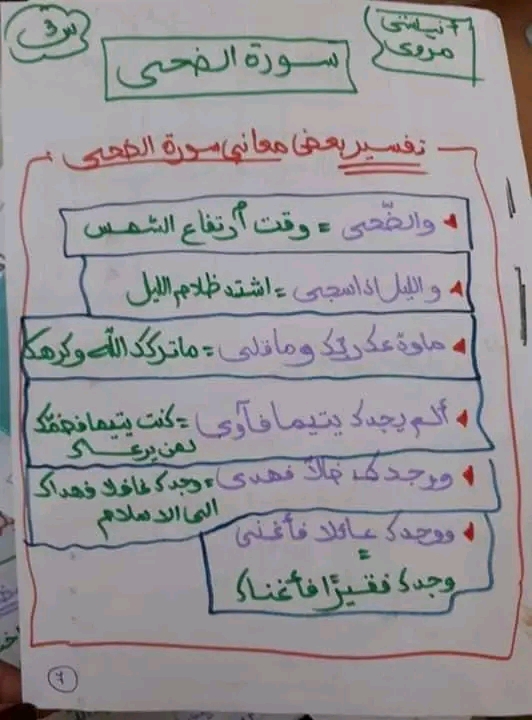 س3
آنيستي
مروى
سورة الضحى
تفسير بعض معاني سورة الضحى
والضّحى = وقت ارتفاع الشمس
والليل اذا سجى = اشتد ظلام الليل
ما ودعك ربك وما قلى = ما تركك الله وكرهك
ألم يجدك يتيما فآوى = كنت يتيما فضمك
لمن يرعاك
ووجدك ضالا فهدى = وجدك غافلا فهداك
الى الاسلام
ووجدك عائلا فأغنى
=
وجدك فقيرًا فأغناك